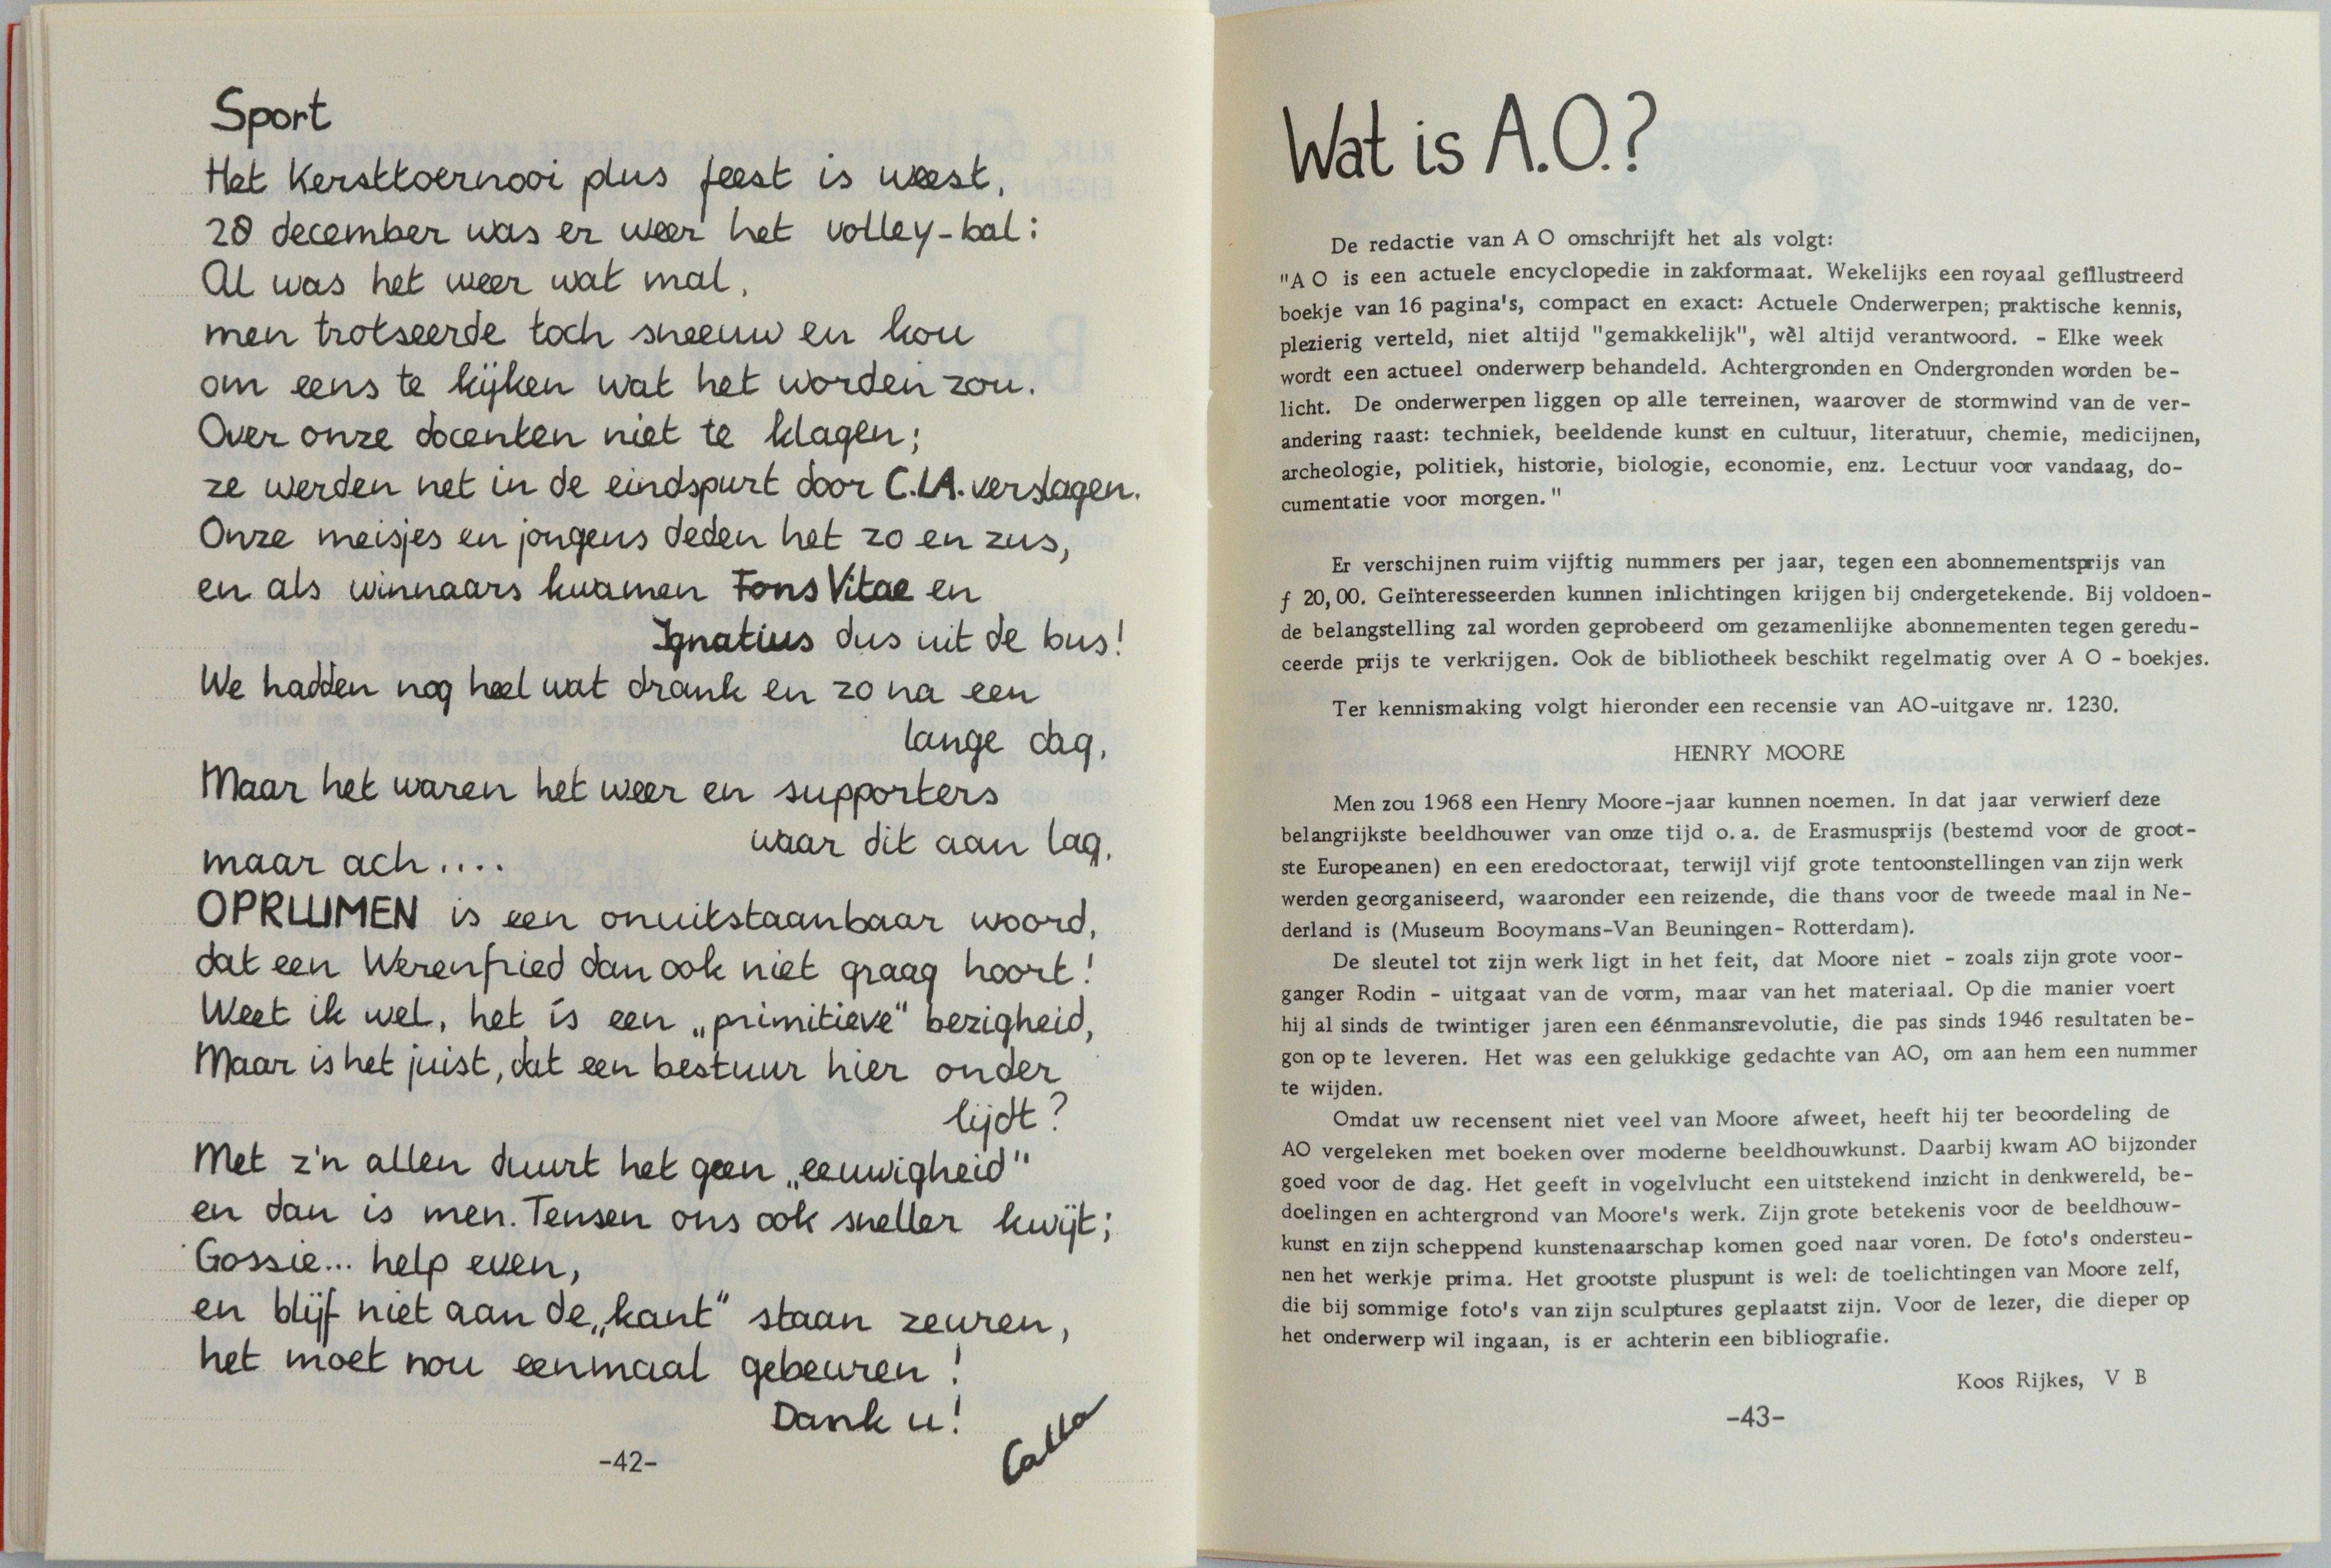 Sport
Het Kersttoernooi plus feest is weest,
28 december was er weer het volley-bal:
Al was het weer wat mal,
men trotseerde toch sneeuw en kou
om eens te kijken wat het worden zou.
Over onze docenten niet te klagen;
ze werden net in de eindspurt door C.I.A. verslagen.
Onze meisjes en jongens deden het zo en zus,
en als winnaars kwamen Fons Vitae en
Ignatius dus uit de bus!
We hadden nog heel wat drank en zo na een
lange dag,
Maar het waren het weer en supporters
waar dit aan lag,
maar ach....
OPRUIMEN is een onuitstaanbaar woord,
dat een Werenfried dan ook niet graag hoort!
Weet ik wel, het ís een „primitieve" bezigheid,
Maar is het juist, dat een bestuur hier onder
lijdt?
Met z'n allen duurt het geen „eeuwigheid"
en dan is men. Tensen ons ook sneller kwijt;
Gossie... help even,
en blijf niet aan de „kant" staan zeuren,
het moet nou eenmaal gebeuren!
Dank u!
Calla
-42-
Wat is A.O.?
De redactie van A O omschrijft het als volgt:
"A O is een actuele encyclopedie in zakformaat. Wekelijks een royaal geïllustreerd
boekje van 16 pagina's, compact en exact: Actuele Onderwerpen; praktische kennis,
plezierig verteld, niet altijd "gemakkelijk", wèl altijd verantwoord. - Elke week
wordt een actueel onderwerp behandeld. Achtergronden en Ondergronden worden be-
licht. De onderwerpen liggen op alle terreinen, waarover de stormwind van de ver-
andering raast: techniek, beeldende kunst en cultuur, literatuur, chemie, medicijnen,
archeologie, politiek, historie, biologie, economie, enz. Lectuur voor vandaag, do-
cumentatie voor morgen."
Er verschijnen ruim vijftig nummers per jaar, tegen een abonnementsprijs van
ƒ 20,00. Geïnteresseerden kunnen inlichtingen krijgen bij ondergetekende. Bij voldoen-
de belangstelling zal worden geprobeerd om gezamenlijke abonnementen tegen geredu-
ceerde prijs te verkrijgen. Ook de bibliotheek beschikt regelmatig over A O - boekjes.
Ter kennismaking volgt hieronder een recensie van AO-uitgave nr. 1230.
HENRY MOORE
Men zou 1968 een Henry Moore-jaar kunnen noemen. In dat jaar verwierf deze
belangrijkste beeldhouwer van onze tijd o.a. de Erasmusprijs (bestemd voor de groot-
ste Europeanen) en een eredoctoraat, terwijl vijf grote tentoonstellingen van zijn werk
werden georganiseerd, waaronder een reizende, die thans voor de tweede maal in Ne-
derland is (Museum Booymans-Van Beuningen- Rotterdam).
De sleutel tot zijn werk ligt in het feit, dat Moore niet - zoals zijn grote voor-
ganger Rodin - uitgaat van de vorm, maar van het materiaal. Op die manier voert
hij al sinds de twintiger jaren een éénmansrevolutie, die pas sinds 1946 resultaten be-
gon op te leveren. Het was een gelukkige gedachte van AO, om aan hem een nummer
te wijden.
Omdat uw recensent niet veel van Moore afweet, heeft hij ter beoordeling de
AO vergeleken met boeken over moderne beeldhouwkunst. Daarbij kwam AO bijzonder
goed voor de dag. Het geeft in vogelvlucht een uitstekend inzicht in denkwereld, be-
doelingen en achtergrond van Moore's werk. Zijn grote betekenis voor de beeldhouw-
kunst en zijn scheppend kunstenaarschap komen goed naar voren. De foto's ondersteu-
nen het werkje prima. Het grootste pluspunt is wel: de toelichtingen van Moore zelf,
die bij sommige foto's van zijn sculptures geplaatst zijn. Voor de lezer, die dieper op
het onderwerp wil ingaan, is er achterin een bibliografie.
Koos Rijkes, V B
-43-